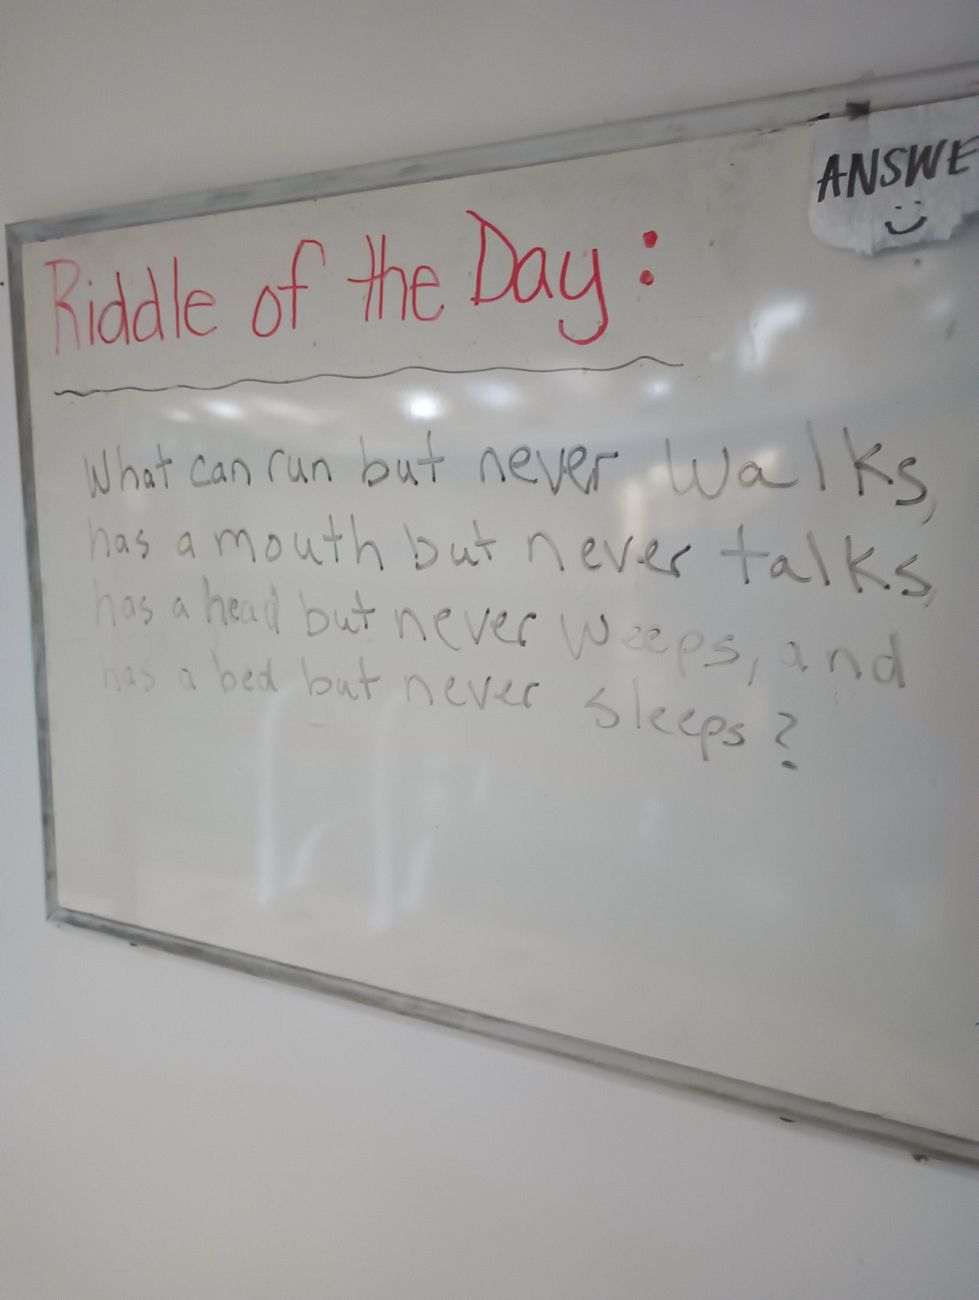 ANSWE
Riddle of the Day:
What can run but never walks,
has a mouth but never talks,
has a head but never weeps, and
has a bed but never sleeps?